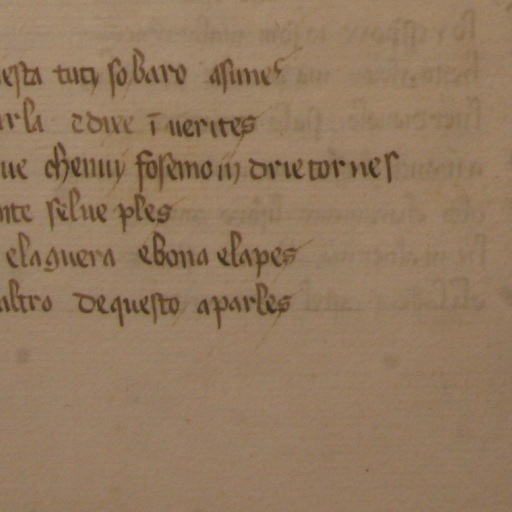 esta tuti so baro asunes
arla 2 dire ī uerites
ue chenuy fosemo in drietornes
nte selue ples
elaguera ebona elapes
altro dequesto aparles